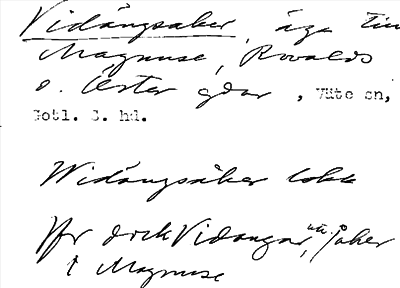 Vidängsaker, äga till
Magnuse, Rovalds
o. Öster gdar, Väte sn,
Gotl. S. hd.
Widängsåker lokk
Jfr dock Vidangar, åker
↑ Magnuse